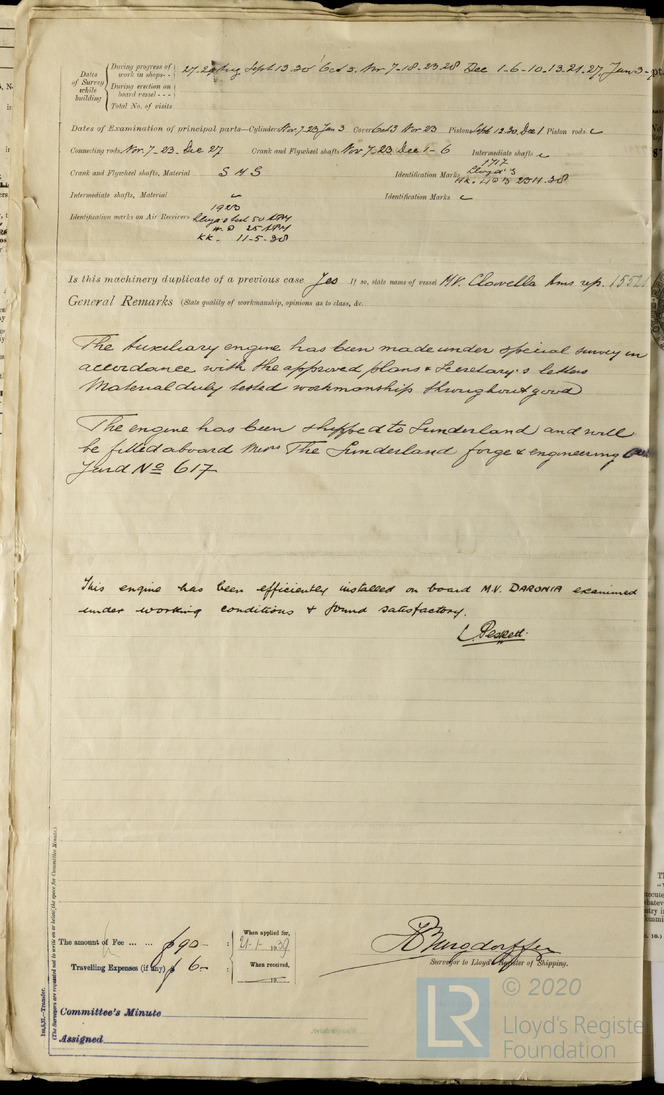 Dates of Survey while building
During progress of work in shops - - 27. 29 Aug Sept 13 30 Oct 3. Nov 7-18-23.28 Dec 1-6-10-13.21.27. Jan 3-
During erection on board vessel - - -
Total No. of visits
Dates of Examination of principal parts—Cylinders Nov. 7-23 Jan 3 Covers Oct 3 Nov 23 Pistons Sept 13.30, Dec 1 Piston rods
Connecting rods Nov. 7-23. Dec 27 Crank and Flywheel shafts Nov 7.23 Dec 1-6 Intermediate shafts
Crank and Flywheel shafts, Material S M S Identification Marks 1717
Lloyd's
23.11.38
Intermediate shafts, Material Identification Marks
Identification marks on Air Receivers
KK. 11-5-38
Is this machinery duplicate of a previous case Yes If so, state name of vessel M.V. Clavella Ams rep. 1552
General Remarks (State quality of workmanship, opinions as to class, &c.
The Auxiliary engine has been made under special survey in
accordance with the approved plans & Secretary's letters
Material duly tested workmanship throughout good
The engine has been shipped to Sunderland and will
be fitted aboard Messrs The Sunderland forge & engineering
Yard No 617
This engine has been efficiently installed on board M.V. DARONIA examined
under working conditions & found satisfactory.
The amount of Fee ... ... 90- :
Travelling Expenses (if any) 6- :
When applied for,
21-1-1939
When received,
19
Burgdorffer
Surveyor to Lloyd's Register of Shipping.
Committee's Minute
Assigned
(The Surveyors are requested not to write on or below the space for Committee Minute.)
Transfer.
LR © 2020
Lloyd's Registe
Foundation